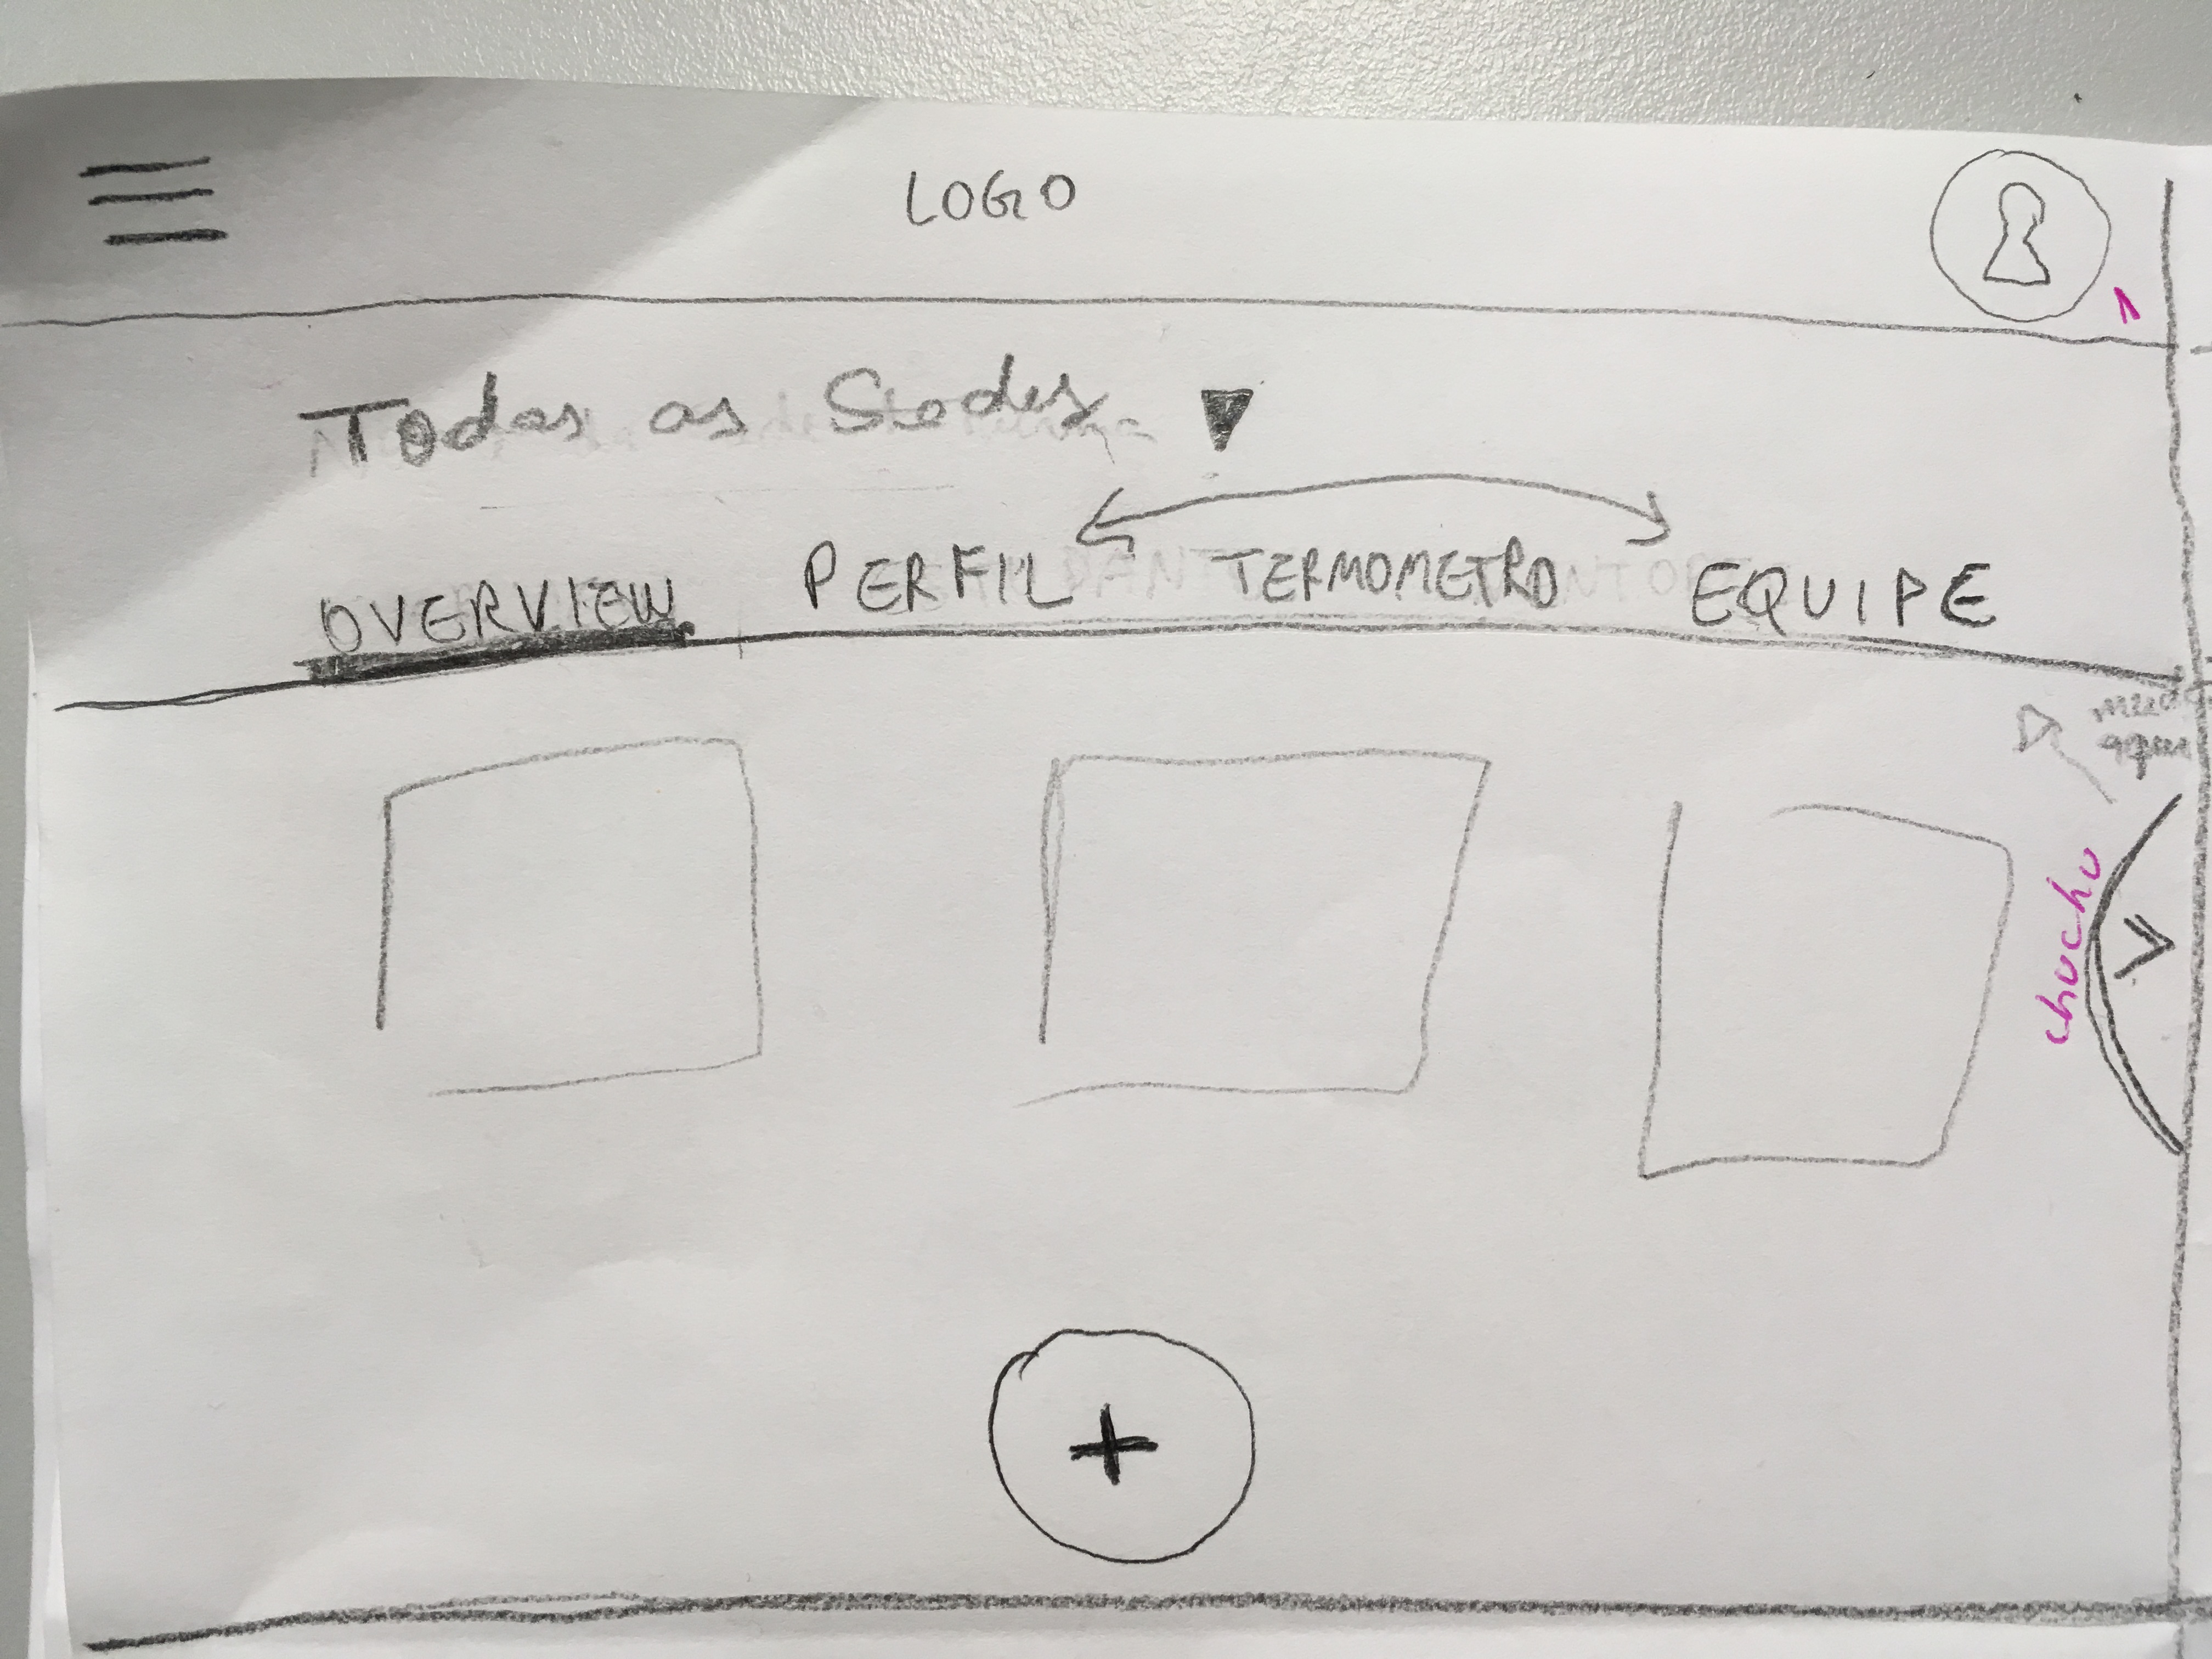 LOGO
Todas as Sedes
OVERVIEW PERFIL TERMOMETRO EQUIPE
chucho
+